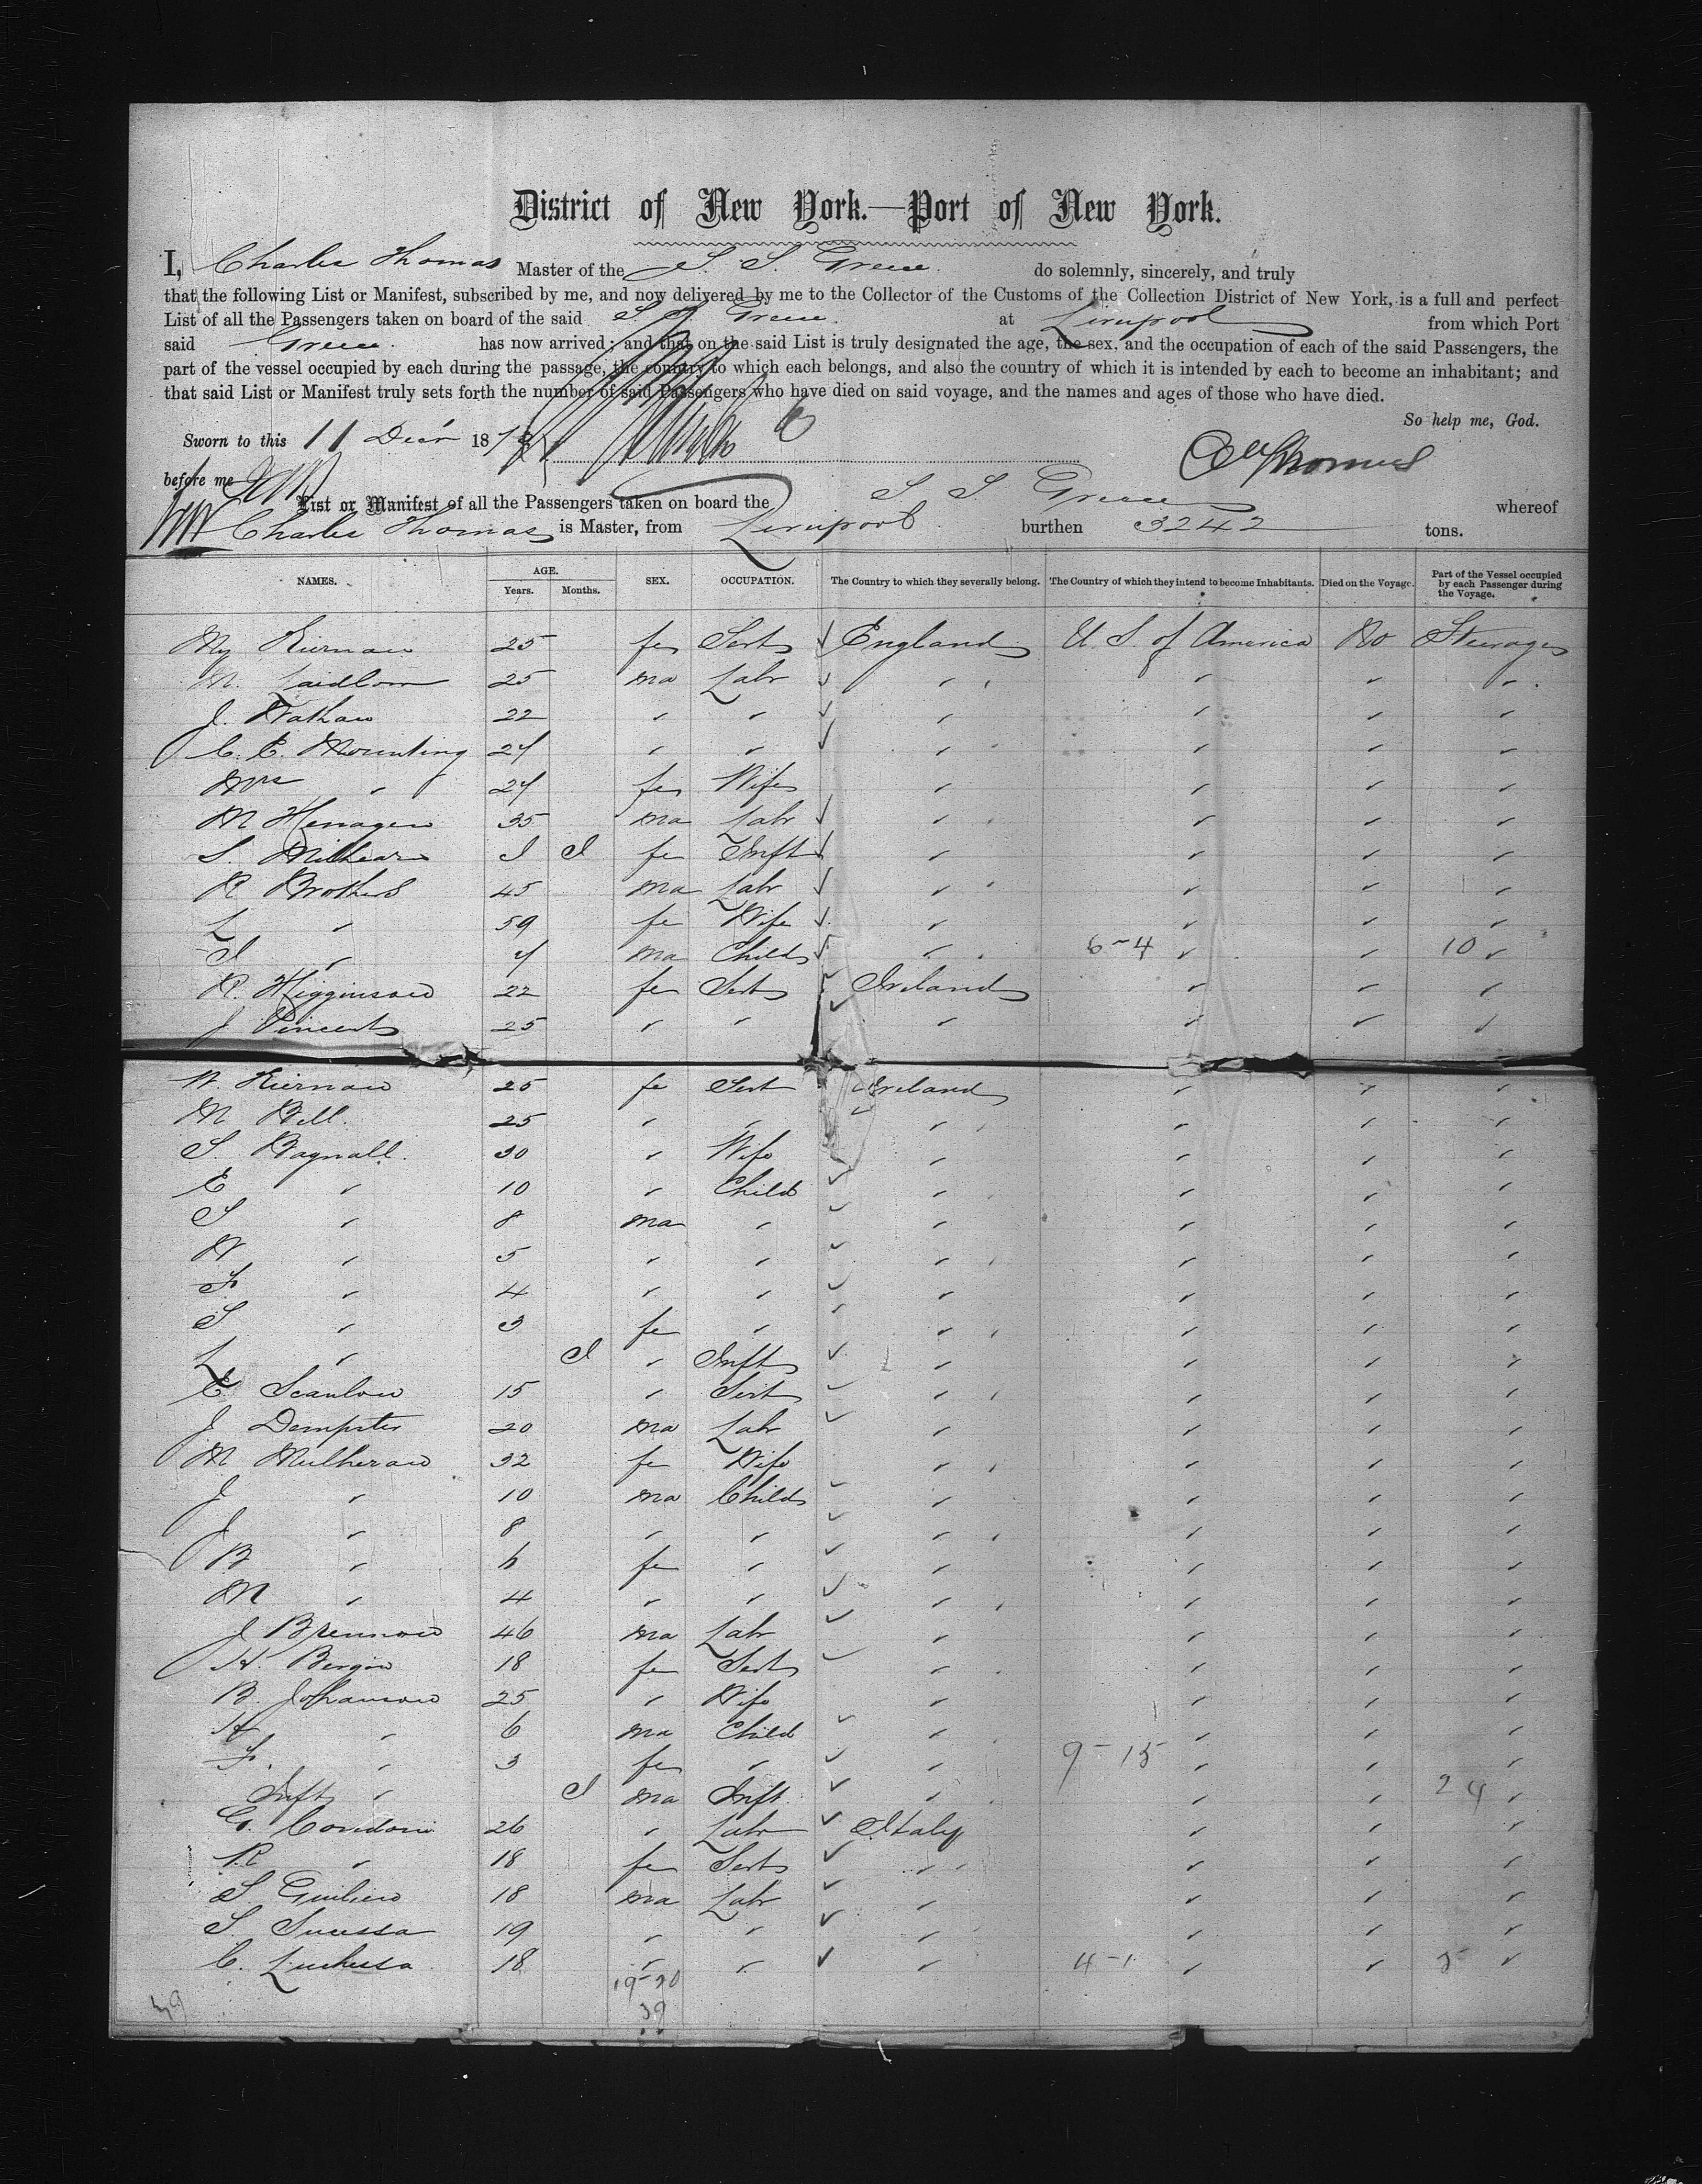 District of New York.—Port of New York.
I, Charles Thomas Master of the S. S. Greece do solemnly, sincerely, and truly
that the following List or Manifest, subscribed by me, and now delivered by me to the Collector of the Customs of the Collection District of New York, is a full and perfect
List of all the Passengers taken on board of the said S. S. Greece at Liverpool from which Port
said Greece. has now arrived; and that on the said List is truly designated the age, the sex, and the occupation of each of the said Passengers, the
part of the vessel occupied by each during the passage, the country to which each belongs, and also the country of which it is intended by each to become an inhabitant; and
that said List or Manifest truly sets forth the number of said Passengers who have died on said voyage, and the names and ages of those who have died.
So help me, God.
Sworn to this 11 Decr 187
before me
List or Manifest of all the Passengers taken on board the S. S. Greece whereof
Charles Thomas is Master, from Liverpool burthen 3242 tons.
NAMES. AGE. Years. Months. SEX. OCCUPATION. The Country to which they severally belong. The Country of which they intend to become Inhabitants. Died on the Voyage. Part of the Vessel occupied by each Passenger during the Voyage.
My Kiernan 25 fe Sert England U. S. of America No Steerage
M. Laidlow 25 ma Labr " " " "
J. Nathan 22 " " " " " "
C. E. Mounting 24 " " " " " "
Mrs " 24 fe Wife " " " "
M Henagen 35 ma Labr " " " "
S. fe Inft " " " "
R Brothers 45 ma Labr " " " "
L " 59 fe Wife " " " "
I " 4 ma Child " 6-4 " " 10 "
R. Higginson 22 fe Sert Ireland " " "
J Vincent 25 " " " " " "
W. Kiernan 25 fe Sert Ireland " " "
M Bell. 25 " " " " " "
S. Bagnall. 30 " Wife " " " "
E " 10 " Child " " " "
S " 8 ma " " " " "
W " 5 " " " " " "
F " 4 " " " " " "
S " 3 fe " " " " "
L " I " Inft " " " "
C. Scanlon 15 " Sert " " " "
J Dempster 20 ma Labr " " " "
M Mulheran 32 fe Wife " " " "
J " 10 ma Child " " " "
J " 8 " " " " " "
B " 6 fe " " " " "
M " 4 " " " " " "
J Brennan 46 ma Labr " " " "
H. Bergin 18 fe Sert " " " "
B. Johanson 25 " Wife " " " "
H " 6 ma Child " " " "
F. " 3 fe " " 9-15 " " "
Inft " I ma Inft. " " " 24 "
G. Condoni 26 " Labr Italy " " "
R " 18 fe Sert " " " "
S. Guilien 18 ma Labr " " " "
S. 19 " " " " " "
C. Luchessa 18 " " " 4-1 " " 5 "
19-20
39 39